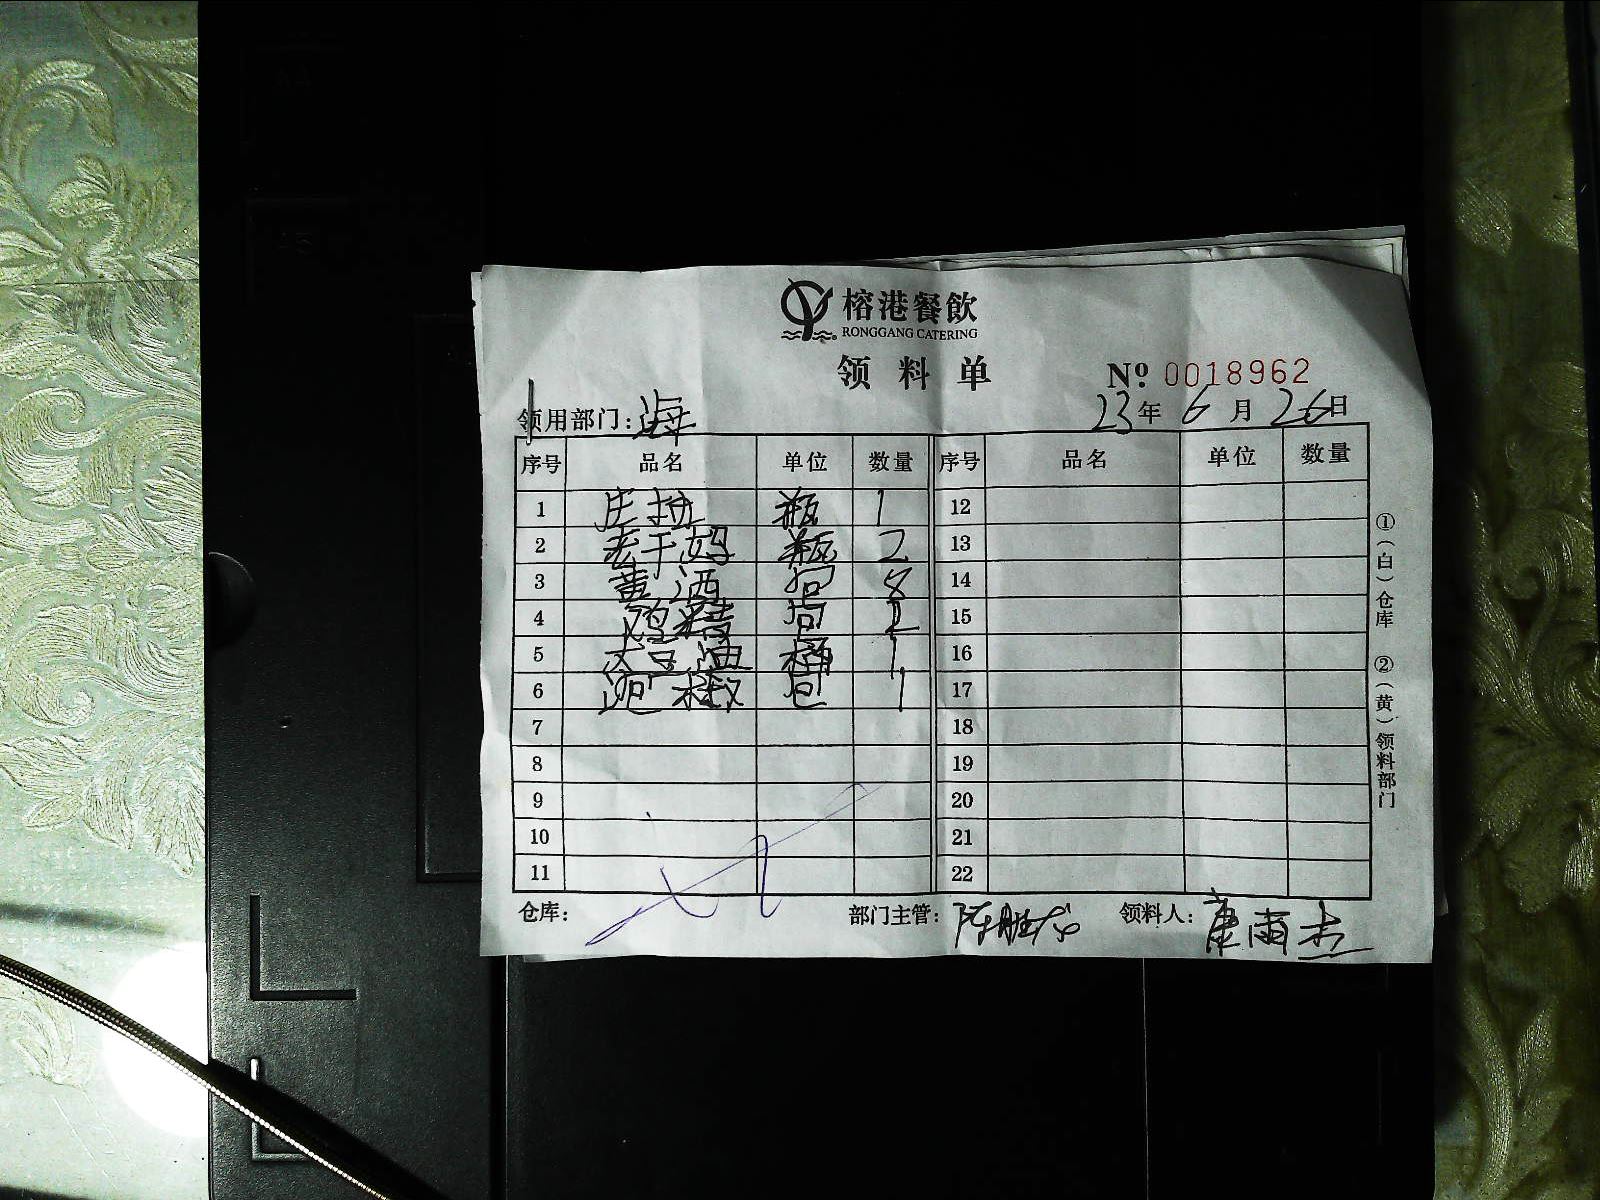 榕港餐飲
RONGGANG CATERING
领料单
№ 0018962
领用部门：海 23年6月26日
序号 品名 单位 数量 序号 品名 单位 数量
1 瓶 1 12
2 老干妈 瓶 2 13
3 黄酒 包 8 14
4 鸡精 包 2 15
5 大豆油 桶 1 16
6 泡椒 包 1 17
7 18
8 19
9 20
10 21
11 22
仓库： 部门主管：陈胜龙 领料人：康雨杰
①（白）仓库 ②（黄）领料部门